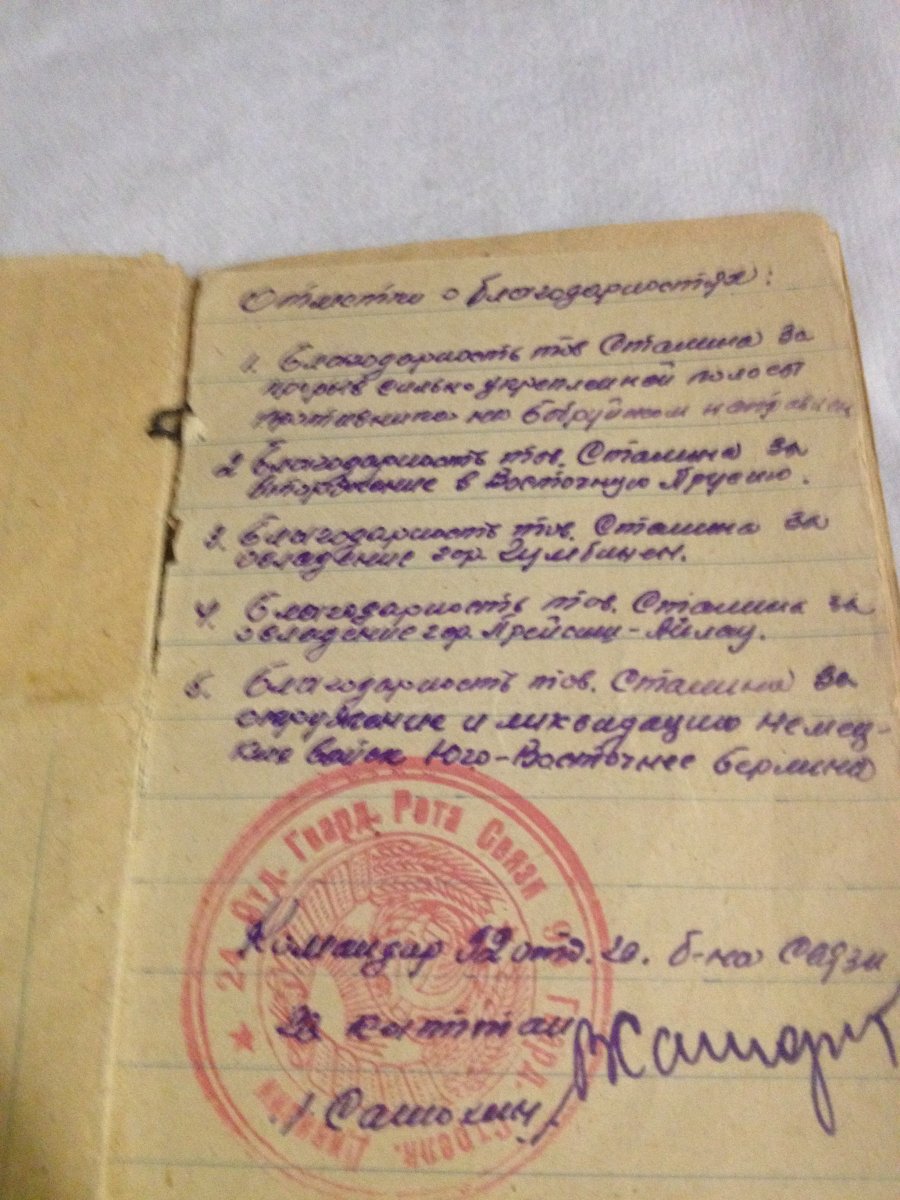 Отметки о благодарностях:
1. Благодарность тов Сталина за
прорыв сильно укрепленной полосы
противника на бобруйском направлен
2 Благодарность тов. Сталина за
вторжение в Восточную Прусию.
3. Благодарность тов. Сталина за
овладение гор. Гумбинен.
4. Благодарность тов. Сталина за
овладение гор. Прейсиш-Айлау.
5. Благодарность тов. Сталина за
окружение и ликвидацию немец-
ких войск Юго-Восточнее берлина
24 Отд. Гвард. Рота Связи Гвард. Стрелк. Дивизии
Командир 12 отд. гв. б-на Связи
гв капитан